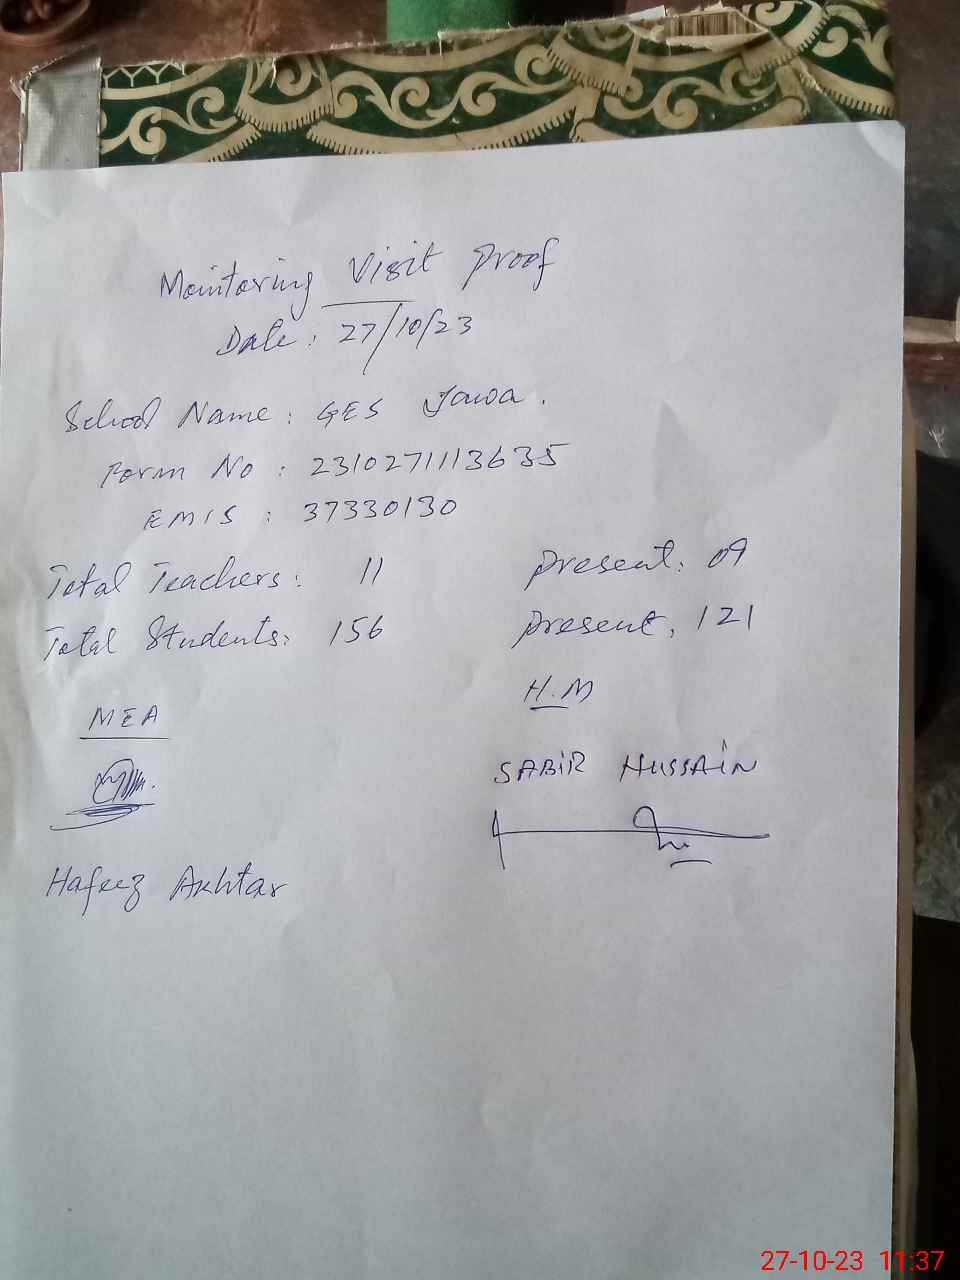 Monitoring Visit Proof
Date: 27/10/23
School Name: GES Jawa.
Form No: 2310271113635
EMIS: 37330130
Total Teachers: 11 Present: 09
Total Students: 156 Present: 121
H.M
MEA
SABIR HUSSAIN
Hafeez Akhtar
27-10-23 11:37